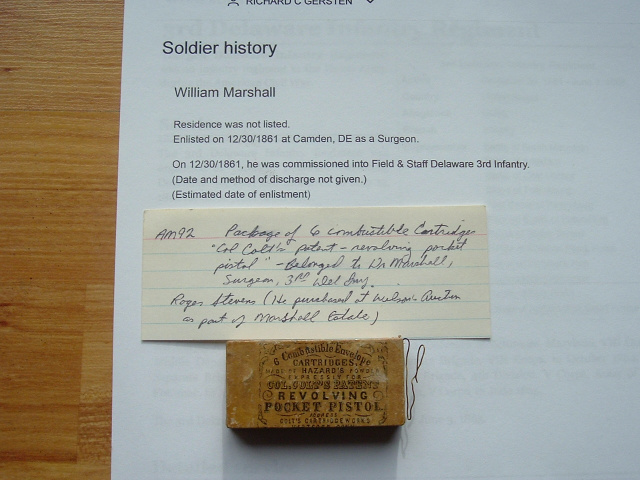 RICHARD C GERSTEN
Soldier history
William Marshall
Residence was not listed.
Enlisted on 12/30/1861 at Camden, DE as a Surgeon.
On 12/30/1861, he was commissioned into Field & Staff Delaware 3rd Infantry.
(Date and method of discharge not given.)
(Estimated date of enlistment)
AM92 Package of 6 combustible Cartridges
"Col Colt's patent - revolving pocket
pistol" - belonged to Dr Marshall,
Surgeon, 3rd Del Inf.
Roger Stevens (He purchased at Wilson's Auction
as part of Marshall Estate)
6 Combustible Envelope
CARTRIDGES
MADE OF HAZARD'S POWDER
EXPRESSLY FOR
COL. COLT'S PATENT
REVOLVING
POCKET PISTOL
ADDRESS
COLT'S CARTRIDGE WORKS